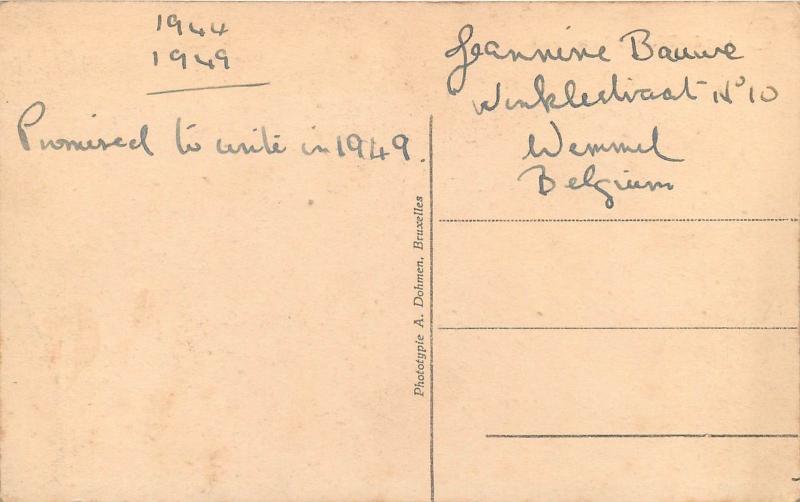 1944
1949
Promised to write in 1949.
Jeannine Bauwe
Winklestraat No 10
Wemmel
Belgium
Phototypie A. Dohmen, Bruxelles